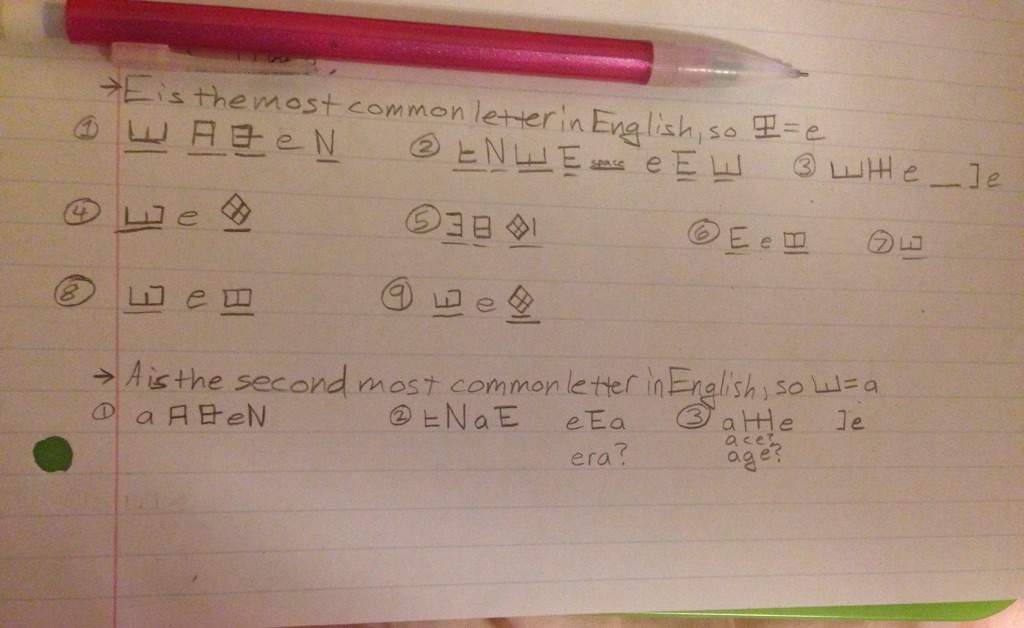 → E is the most common letter in English, so 田 = e
① 山 月 日 e N ② 上 N 山 E space e E 山 ③ 山 卅 e _ ]e
④ 山 e
⑤ ヨ 日
⑥ E e ⑦ 山
⑧ 山 e ⑨ 山 e
→ A is the second most common letter in English, so 山 = a
① a e N ② N a E e E a ③ a 卅 e ]e
ace?
era? age?